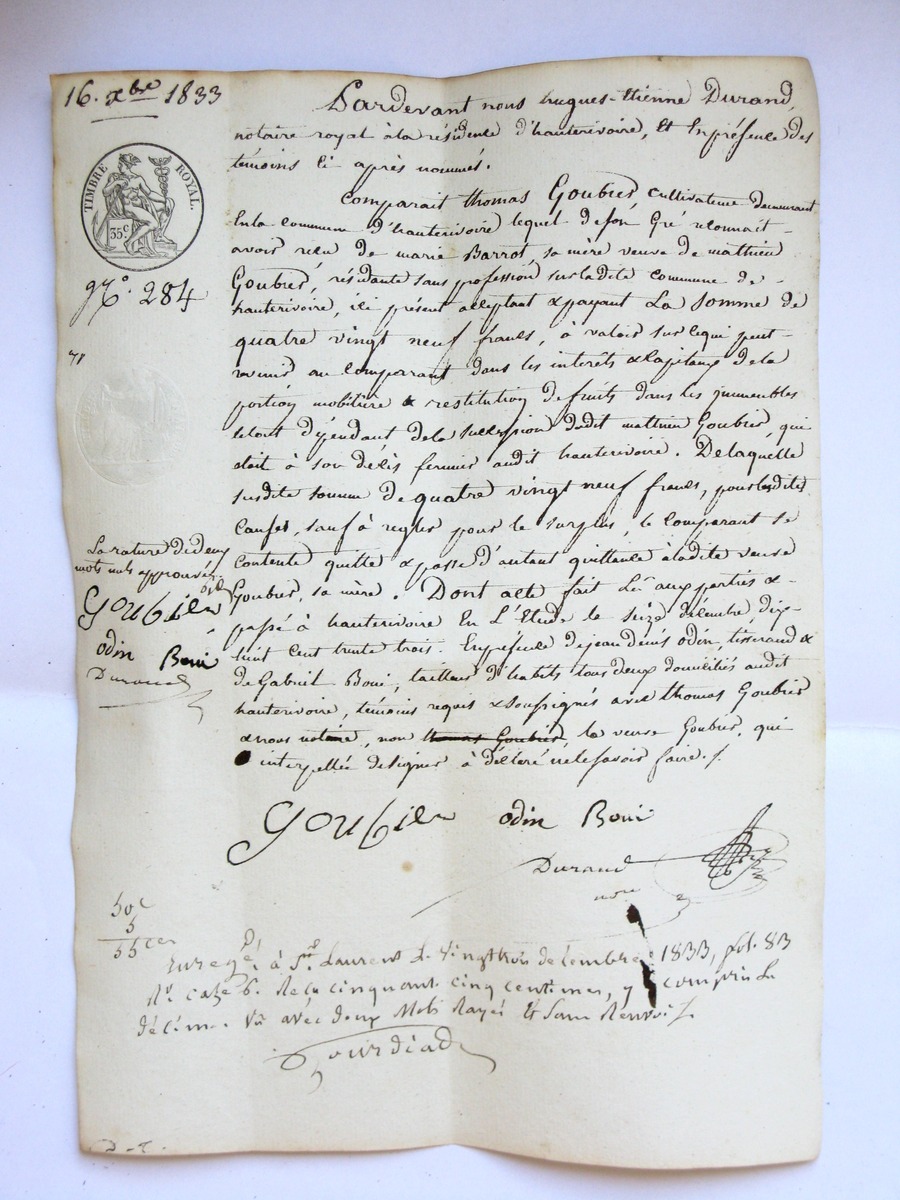 16. xbre 1833
TIMBRE ROYAL.
35c
No. 284
Pardevant nous hugues-Etienne Durand,
notaire royal à la résidence d'hauterivoire, Et En présence des
témoins ci après nommés.
Comparait thomas Goubier, cultivateur demeurant
En la commune d'hauterivoire lequel de son Gré reconnait
avoir reçu de marie Barrot, sa mère veuve de mathieu
Goubier, résidante sans profession sur ladite commune de
hauterivoire, ici présent acceptant & payant La Somme de
quatre vingt neuf francs, à valoir sur ce qui peut
revenir au Comparant dans les interêts & Capitaux de la
portion mobilière & restitution de fruits dans les immeubles
le tout dépendant de la succession dudit mathieu Goubier, qui
était à son décès fermier audit hauterivoire. De laquelle
susdite somme de quatre vingt neuf francs, pour lesdites
Causes, sauf à regler pour le surplus, le comparant se
Contente quitte & passe d'autant quittance à ladite veuve
Goubier, sa mère. Dont acte fait Lu aux parties &
passé à hauterivoire En L'Etude le seize décembre, dix
huit cent trente trois. En présence de jean denis Odin, tisserand &
de Gabriel Boui, tailleur d'habits tous deux domiciliés audit
hauterivoire, témoins requis & Soussignés avec thomas Goubier
& nous notaire, non thomas Goubier, la veuve Goubier, qui
interpellée de signer à déclaré ne le savoir faire./.
La rature de deux
mots nuls approuvée
Goubier
odin Boui
Durand
Goubier odin Boui
Durand
nore
50c
5
55 cen
Enregé. à St. Laurent Le vingt trois décembre 1833, fol. 83
Ro. case 6. Reçu cinquante cinq centimes, y compris Le
décime. Vu avec deux Mots Rayés Et Sans Renvoi